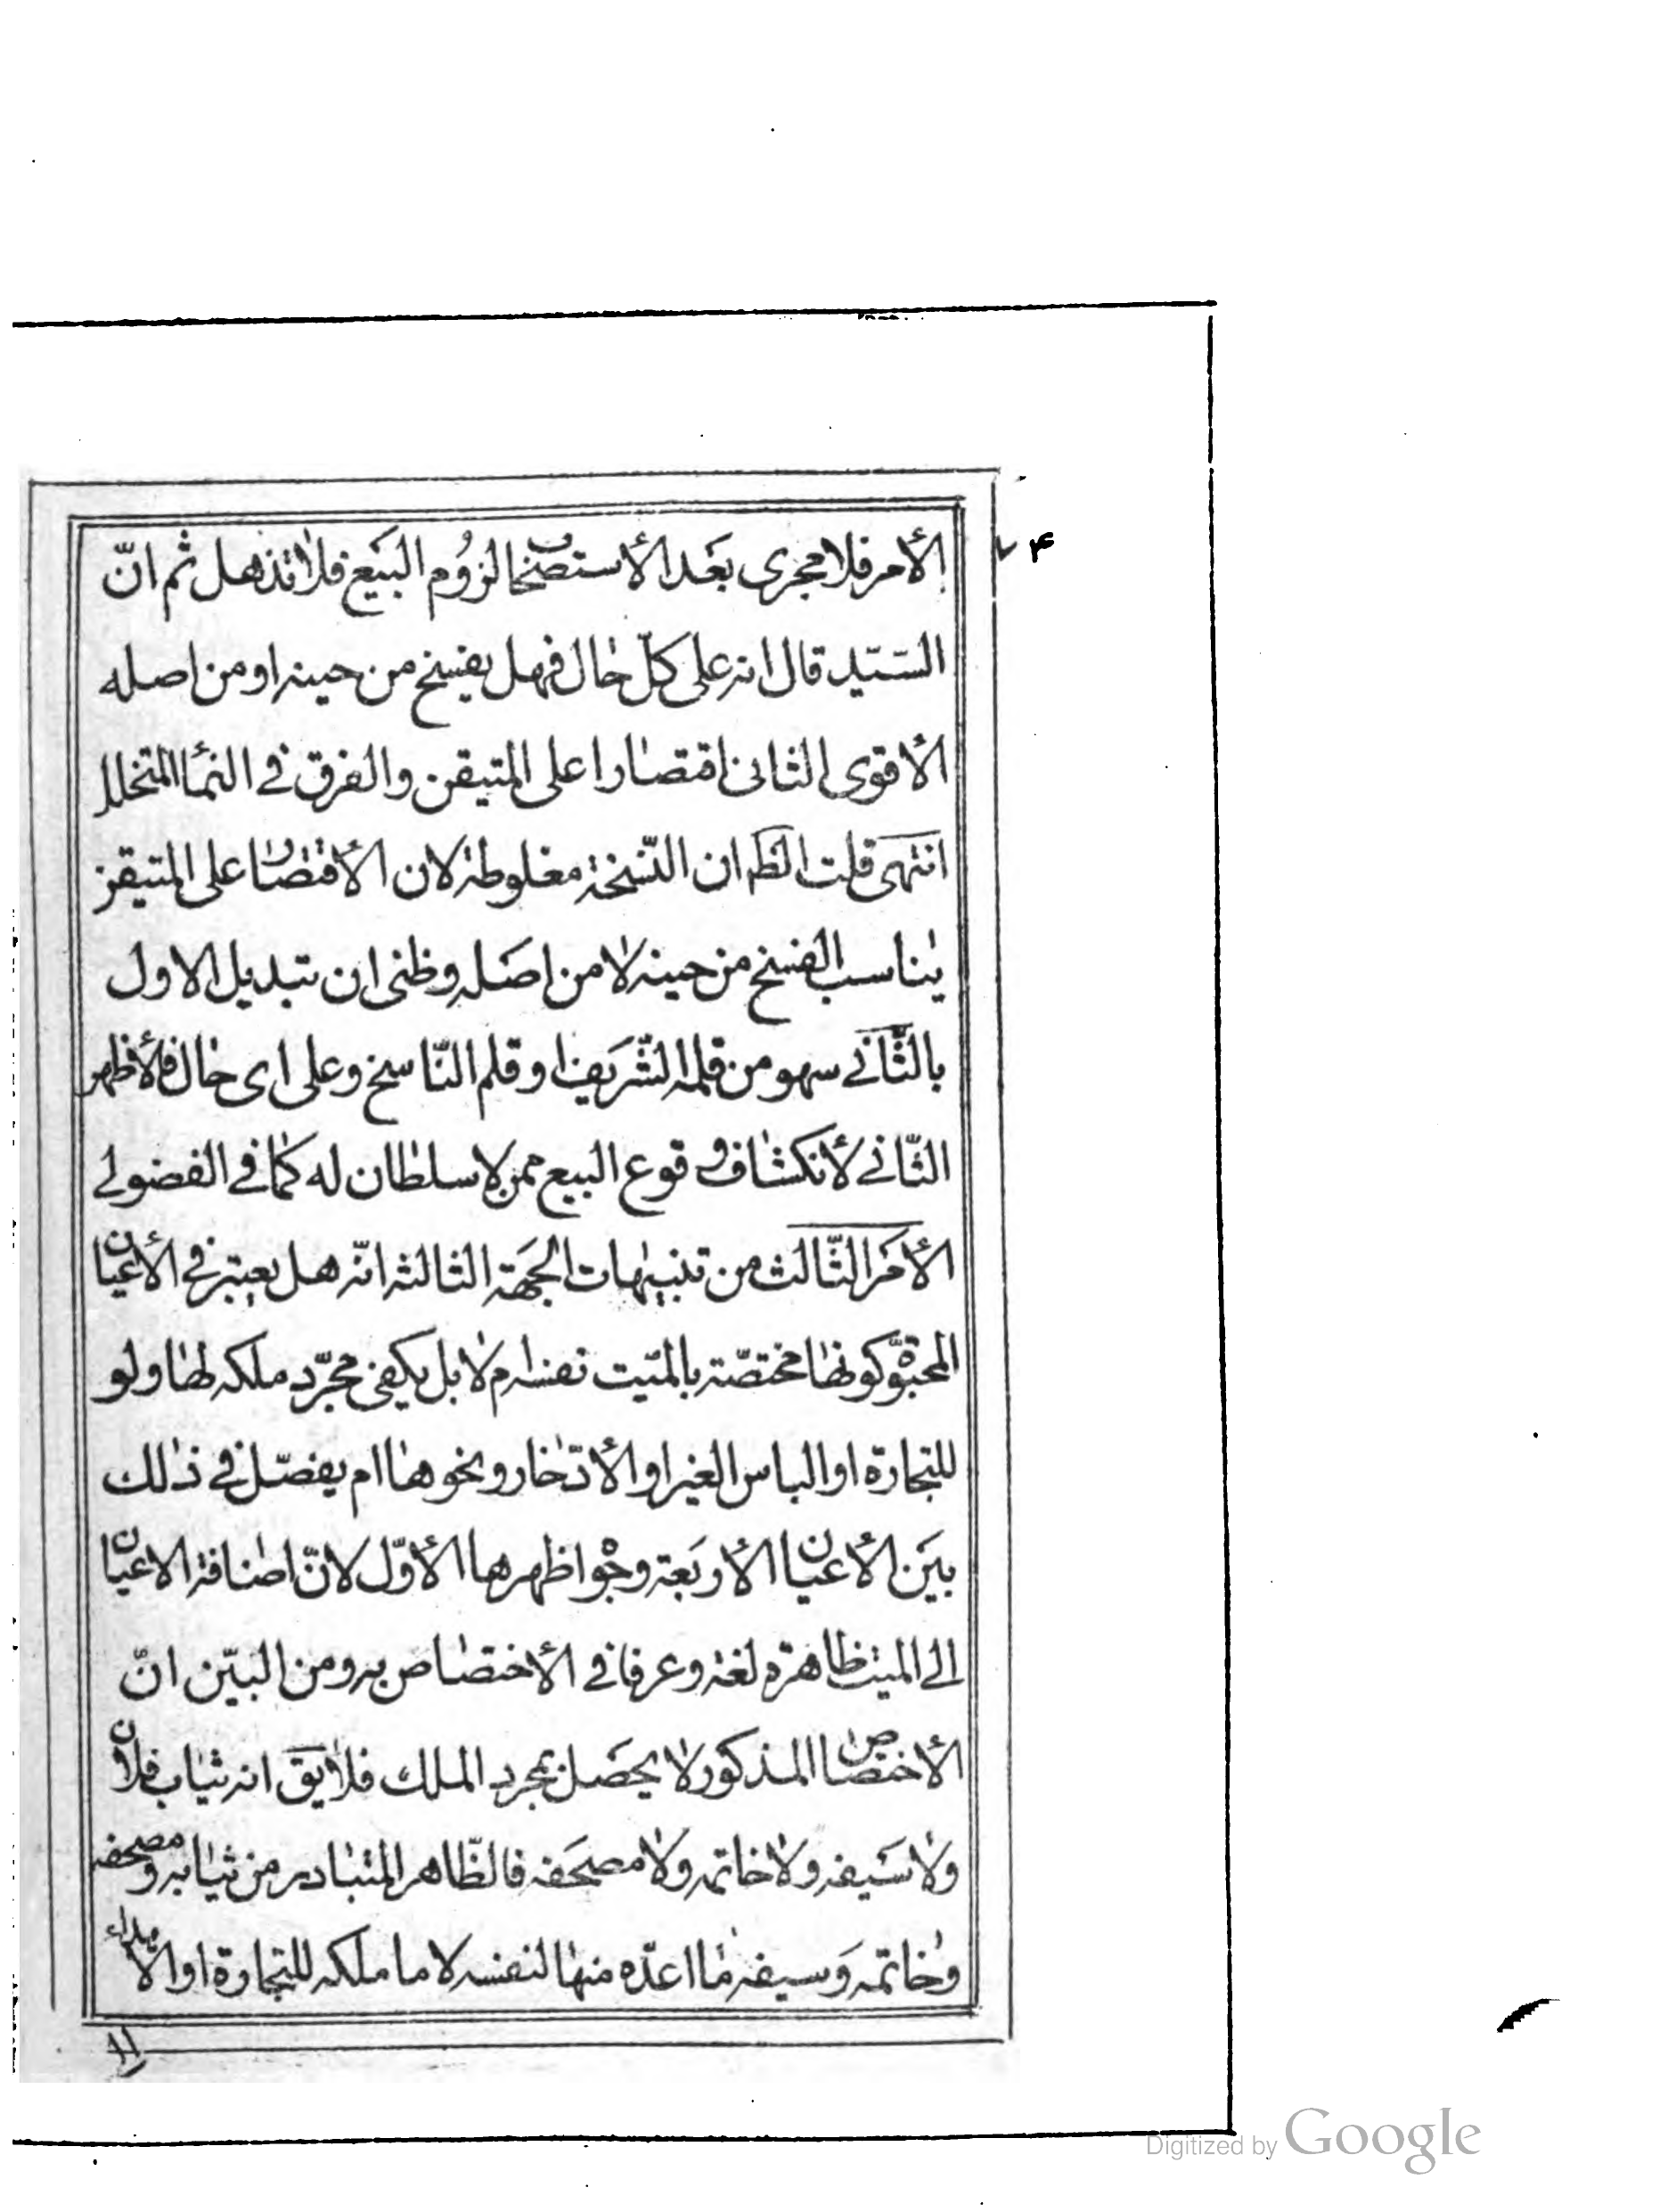 ۷۴
الأمر فلا مجرى بعد الأستصحاب لزوم البيع فلا تذهل ثم انّ
السّيّد قال انه على كلّ حال فهل يفسخ من حينه او من اصله
الأقوى الثانى اقتصارا على المتيقن والفرق في النمأ المتخلل
انتهى قلت الظ ان النّسخة مغلوطة لان الأقتصار على المتيقن
يناسب الفسخ من حينه لا من اصله وظنى ان تبديل الاول
بالثّاني سهو من قلمه الشّريف او قلم النّاسخ وعلى اى حال فالأظهر
الثّاني لأنكشاف وقوع البيع ممن لا سلطان له كما في الفضولي
الأمر الثّالث من تنبيهات الجهة الثالثه انّه هل يعتبر في الأعيان
المحبوّة كونها مختصّة بالميّت نفسه ام لا بل يكفى مجرّد ملكه لها ولو
للتجارة او الباس الغير او الأدّخار ونحوها ام يفصّل في ذلك
بين الأعيان الأربعة وجوه اظهرها الأوّل لانّ اضافة الاعيان
الى الميت ظاهرة لغة وعرفا في الأختصاص به ومن البيّن انّ
الأختصاص المذكور لا يحصل بمجرد الملك فلا يق انه ثياب فلان
ولا سيفه ولا خاتمه ولا مصحفه فالظّاهر المتبادر من ثيابه ومصحفه
وخاتمه وسيفه ما اعدّه منها لنفسه لا ما ملكه للتجارة او الأهداء
Digitized by Google